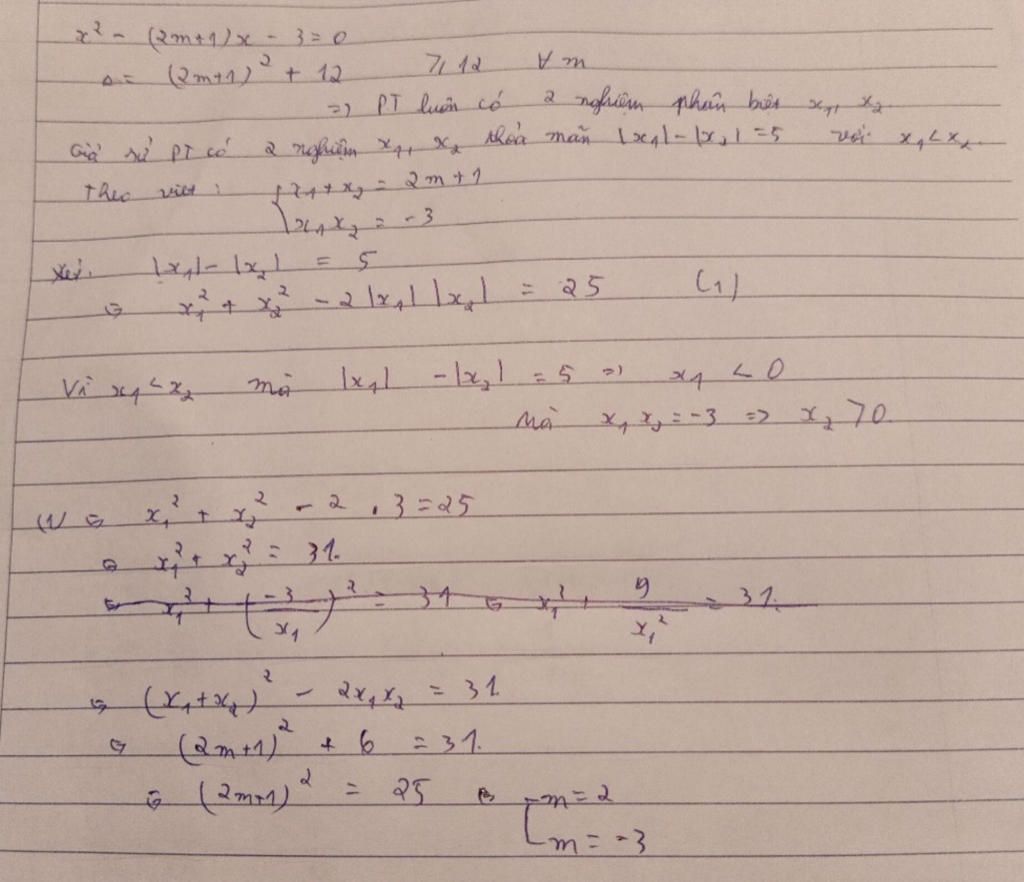 x² - (2m+1)x - 3 = 0
Δ = (2m+1)² + 12 ≥ 12 ∀ m
=> PT luôn có 2 nghiệm phân biệt x₁, x₂
Giả sử PT có 2 nghiệm x₁, x₂ thỏa mãn |x₁| - |x₂| = 5 với x₁ < x₂.
Theo viet : { x₁ + x₂ = 2m+1
x₁ x₂ = -3
Xét. |x₁| - |x₂| = 5
⇔ x₁² + x₂² - 2 |x₁| |x₂| = 25 (1)
Vì x₁ < x₂ mà |x₁| - |x₂| = 5 => x₁ < 0
Mà x₁ x₂ = -3 => x₂ > 0
(1) ⇔ x₁² + x₂² - 2 . 3 = 25
⇔ x₁² + x₂² = 31.
⇔ x₁² + (-3/x₁)² = 31 ⇔ x₁² + 9/x₁² = 31.
⇔ (x₁ + x₂)² - 2x₁x₂ = 31.
⇔ (2m+1)² + 6 = 31.
⇔ (2m+1)² = 25 ⇔ [ m = 2
m = -3